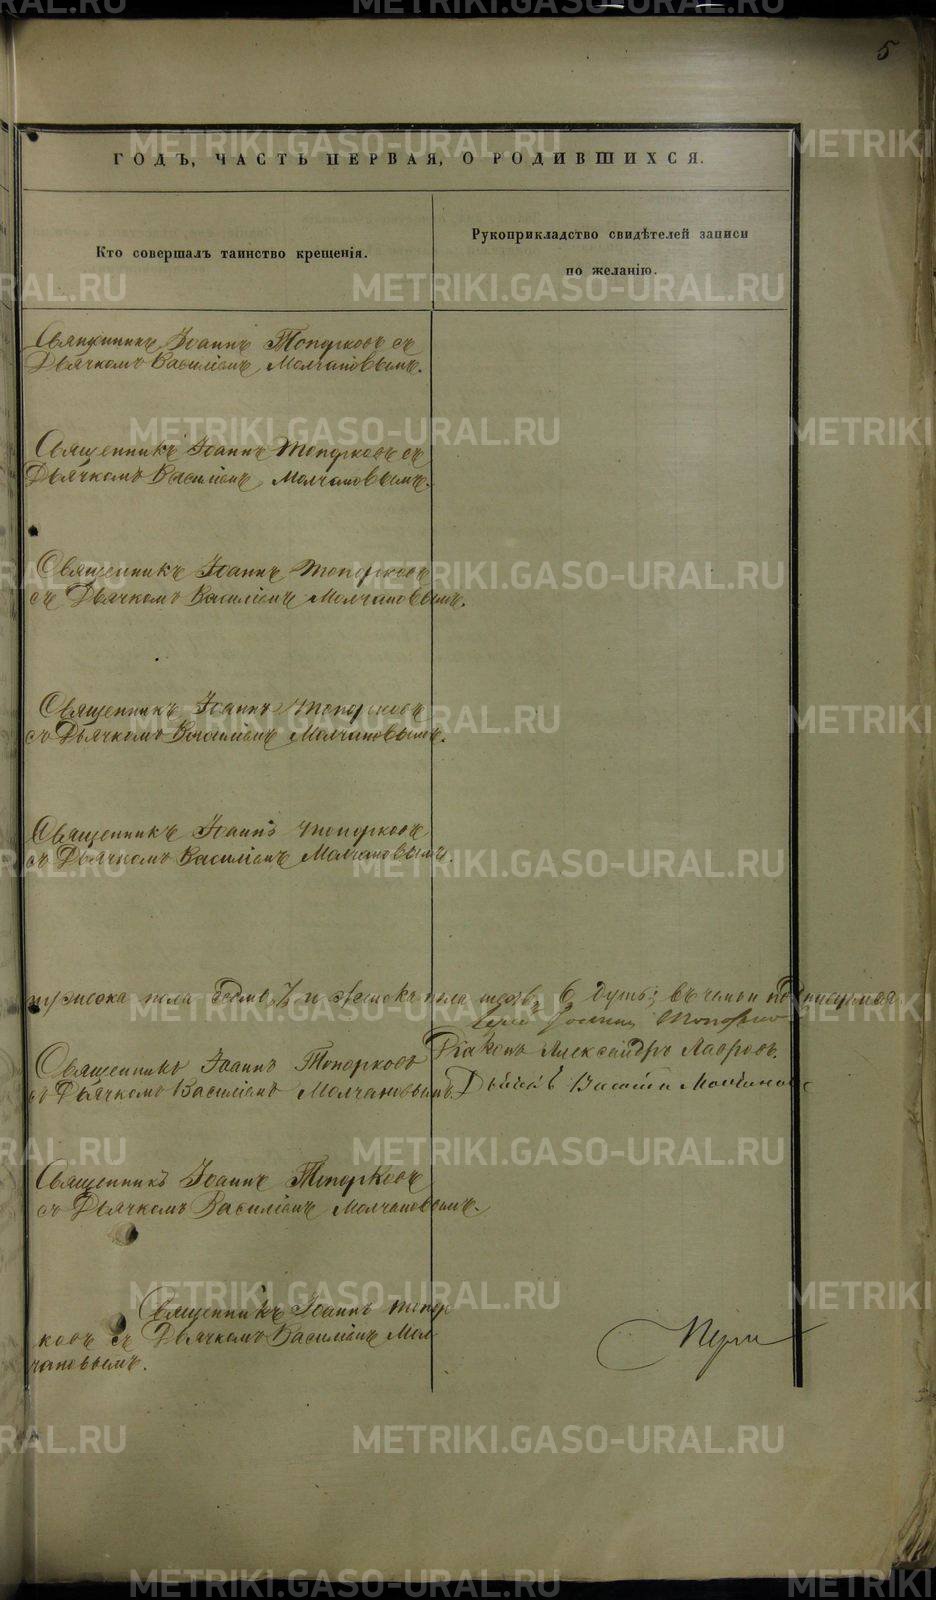 5
ГОДЪ, ЧАСТЬ ПЕРВАЯ, О РОДИВШИХСЯ.
Кто совершалъ таинство крещенія.
Рукоприкладство свидѣтелей записи
по желанію.
Священникъ Іоаннъ Топорковъ съ
Дьячкомъ Василіемъ Молчановымъ.
Священникъ Іоаннъ Топорковъ съ
Дьячкомъ Василіемъ Молчановымъ.
Священникъ Іоаннъ Топорковъ
съ Дьячкомъ Василіемъ Молчановымъ.
Священникъ Іоаннъ Топорковъ
съ Дьячкомъ Василіемъ Молчановымъ.
Священникъ Іоаннъ Топорковъ
съ Дьячкомъ Василіемъ Молчановымъ.
мужеска пола седмь 7 и женска пола шесть 6 душъ; въ чемъ и подписуемся
Іоаннъ Топорков
Священникъ Іоаннъ Топорковъ
съ Дьячкомъ Василіемъ Молчановымъ.
Діаконъ Александръ Лавровъ.
Дьячекъ Василій Молчановъ
Священникъ Іоаннъ Топорковъ
съ Дьячкомъ Василіемъ Молчановымъ.
Священникъ Іоаннъ Топор
ковъ съ Дьячкомъ Василіемъ Мол
чановымъ.
METRIKI.GASO-URAL.RU